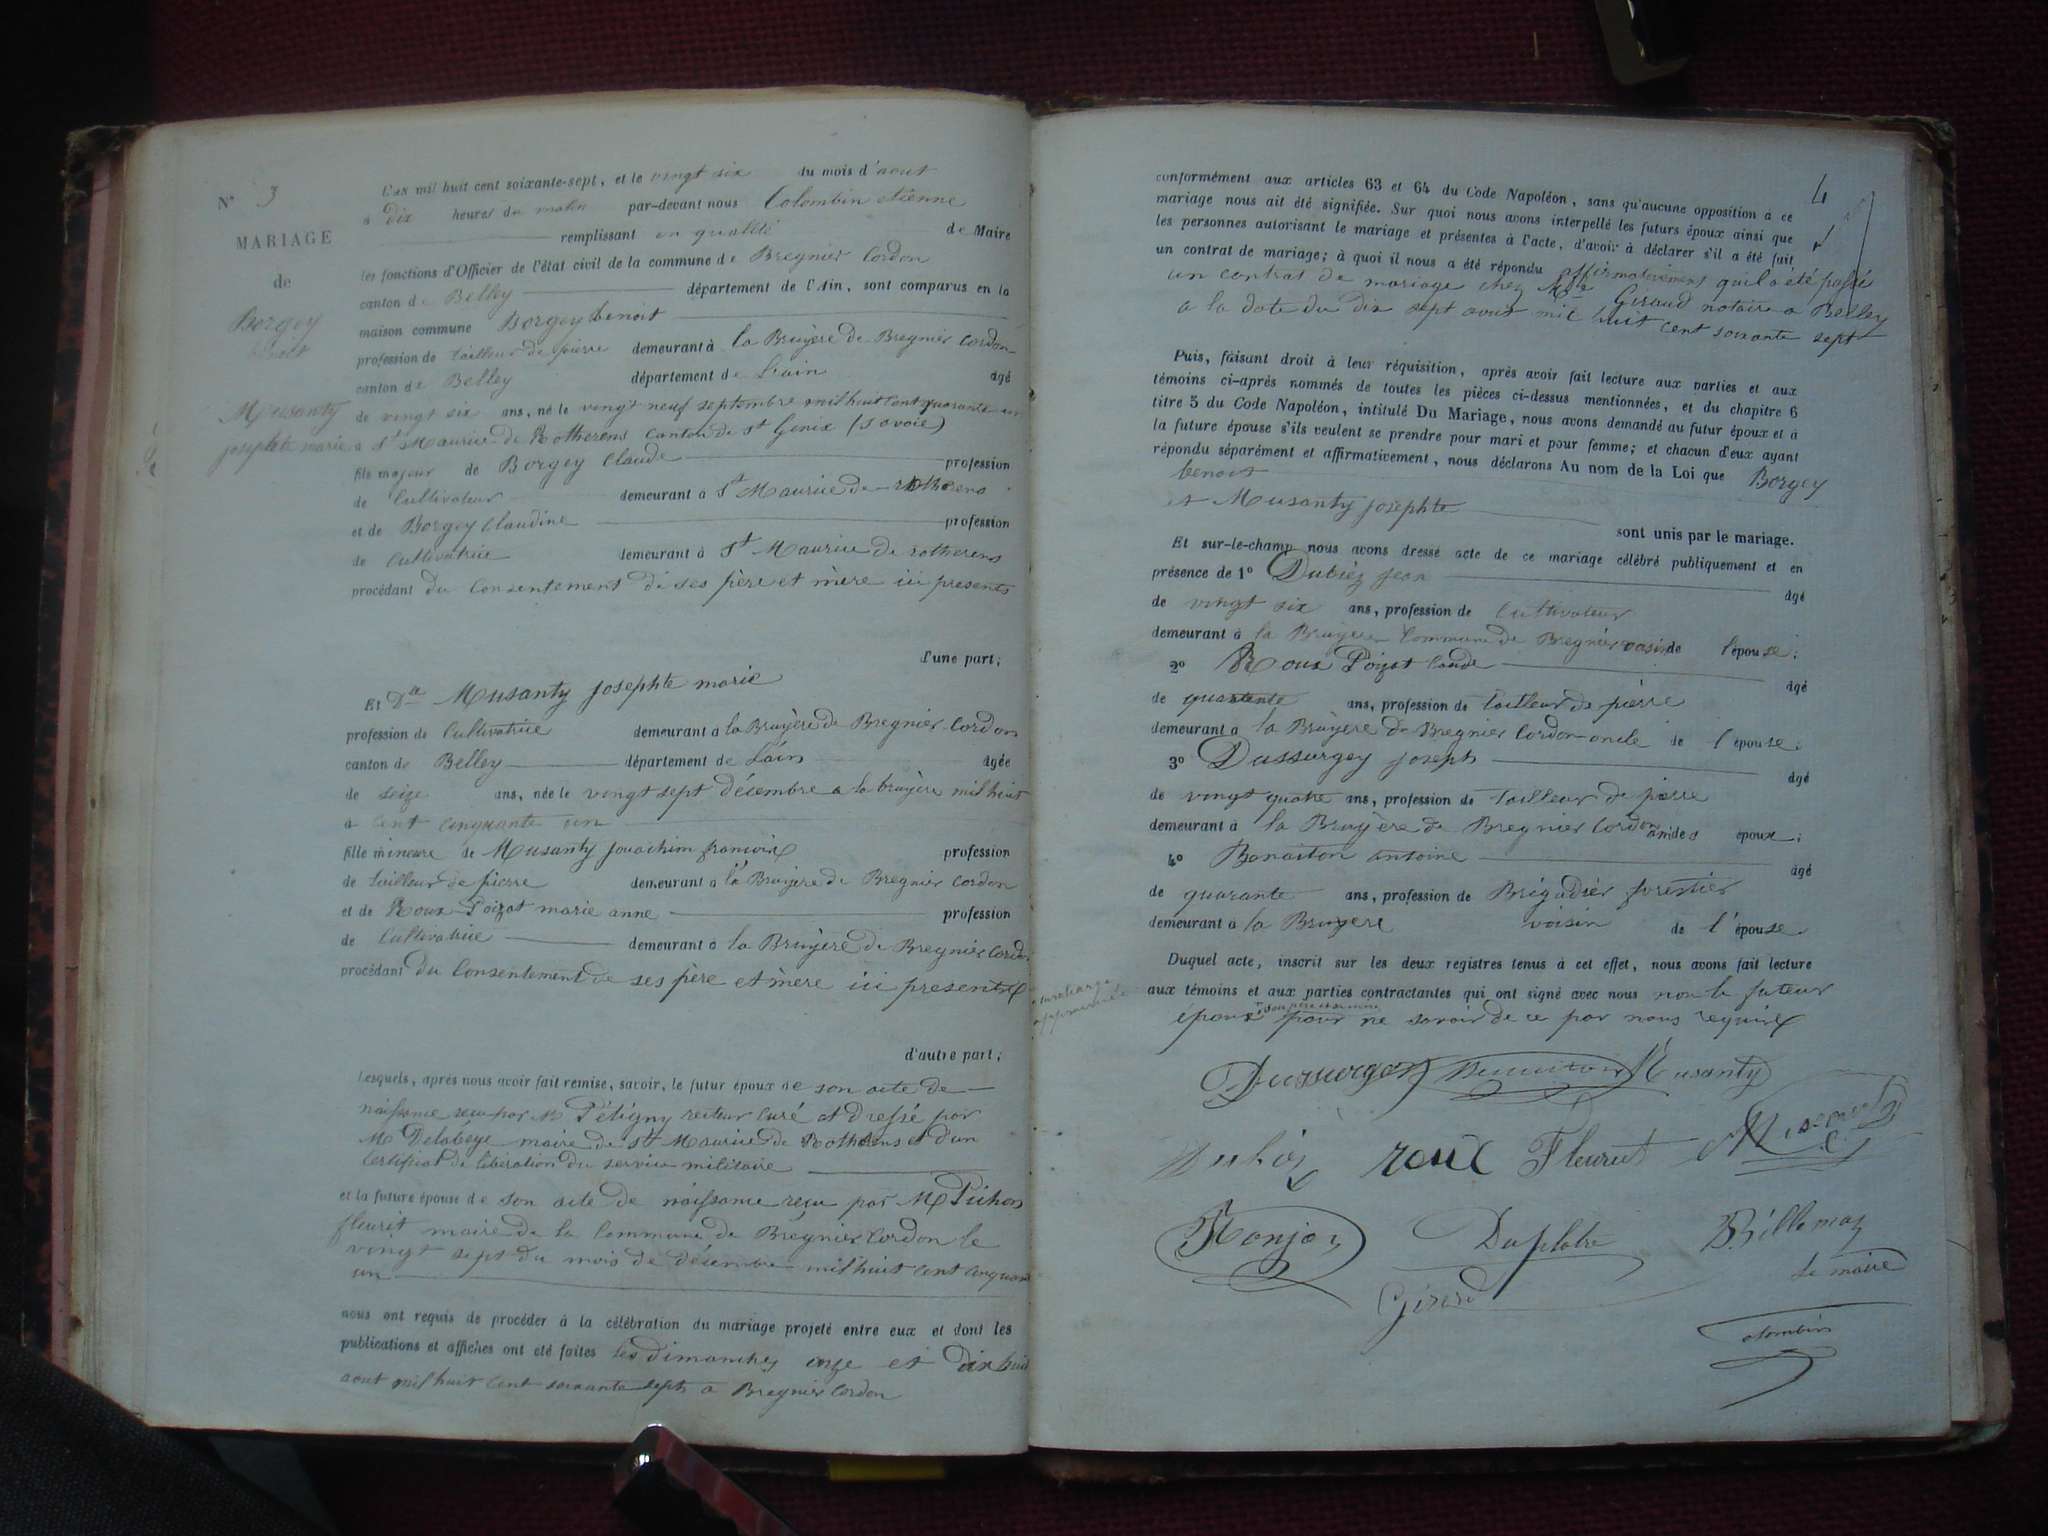 N° 3
MARIAGE
de
Borgey
benoit
Musanty
josephte marie
L'an mil huit cent soixante-sept, et le vingt six du mois d'aout
à dix heures du matin par-devant nous Colombin etienne
remplissant en qualité de Maire
les fonctions d'Officier de l'état civil de la commune de Bregnier Cordon
canton de Belley département de l'Ain, sont comparus en la
maison commune Borgey benoit
profession de tailleur de pierre demeurant à la Bruyère de Bregnier Cordon
canton de Belley département de L'ain âgé
de vingt six ans, né le vingt neuf septembre mil huit cent quarante un
à St Maurice de Rotherens canton de St Genix (Savoie)
fils majeur de Borgey Claude profession
de Cultivateur demeurant à St Maurice de rotherens
et de Borgey Claudine profession
de Cultivatrice demeurant à St Maurice de rotherens
procédant du Consentement de ses père et mère ici presents
d'une part;
Et Dlle Musanty Josephte marie
profession de Cultivatrice demeurant à la Bruyère de Bregnier Cordon
canton de Belley département de L'ain âgée
de seize ans, née le vingt sept décembre a la bruyère mil huit
à cent cinquante un
fille mineure de Musanty Jouachim francois profession
de tailleur de pierre demeurant à la Bruyère de Bregnier Cordon
et de Roux Poizat marie anne profession
de Cultivatrice demeurant à la Bruyère de Bregnier Cordon
procédant du Consentement de ses père et mère ici presents
d'autre part;
Lesquels, après nous avoir fait remise, savoir, le futur époux de son acte de
naissance recu par M Pétigny recteur curé et dressé par
M Delabeye maire de St Maurice de Rotherens et d'un
Certificat de libération du service militaire
et la future épouse de son acte de naissance reçu par M Pichon
fleurit maire de la Commune de Bregnier Cordon le
vingt sept du mois de décembre mil huit cent cinquante
un
nous ont requis de procéder à la célébration du mariage projeté entre eux et dont les
publications et affiches ont été faites les dimanches onze et dix huit
aout mil huit cent soixante sept a Bregnier Cordon
4
conformément aux articles 63 et 64 du Code Napoléon, sans qu'aucune opposition à ce
mariage nous ait été signifiée. Sur quoi nous avons interpellé les futurs époux ainsi que
les personnes autorisant le mariage et présentes à l'acte, d'avoir à déclarer s'il a été fait
un contrat de mariage; à quoi il nous a été répondu affirmativement quil a été passé
un contrat de mariage chez Giraud notaire a Belley
a la date du dix sept aout mil huit cent soixante sept
Puis, faisant droit à leur réquisition, après avoir fait lecture aux parties et aux
témoins ci-après nommés de toutes les pièces ci-dessus mentionnées, et du chapitre 6
titre 5 du Code Napoléon, intitulé Du Mariage, nous avons demandé au futur époux et à
la future épouse s'ils veulent se prendre pour mari et pour femme; et chacun d'eux ayant
répondu séparément et affirmativement, nous déclarons Au nom de la Loi que Borgey
benoit
et Musanty josephte
sont unis par le mariage.
Et sur-le-champ nous avons dressé acte de ce mariage célébré publiquement et en
présence de 1° Dubiez jean âgé
de vingt six ans, profession de Cultivateur
demeurant à la Bruyère Commune de Bregnier voisin de l'épouse;
2° Roux Poizat Claude âgé
de quarante ans, profession de tailleur de pierre
demeurant à la Bruyère de Bregnier Cordon oncle de l'épouse;
3° Dussurgey joseph âgé
de vingt quatre ans, profession de tailleur de pierre
demeurant à la Bruyère de Bregnier Cordon ami des époux;
4° Benaiton antoine âgé
de quarante ans, profession de Brigadier forestier
demeurant à la Bruyere voisin de l'épouse.
Duquel acte, inscrit sur les deux registres tenus à cet effet, nous avons fait lecture
surcharge
approuvée
aux témoins et aux parties contractantes qui ont signé avec nous non le futeur
époux pour ne savoir de ce par nous requis
Dussurgey Musanty
roux Fleuret
Monjoz Duplatre Billemaz
Girard le maire
Colombin